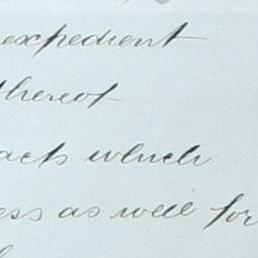 expedient
thereof
acts which
ess as well for